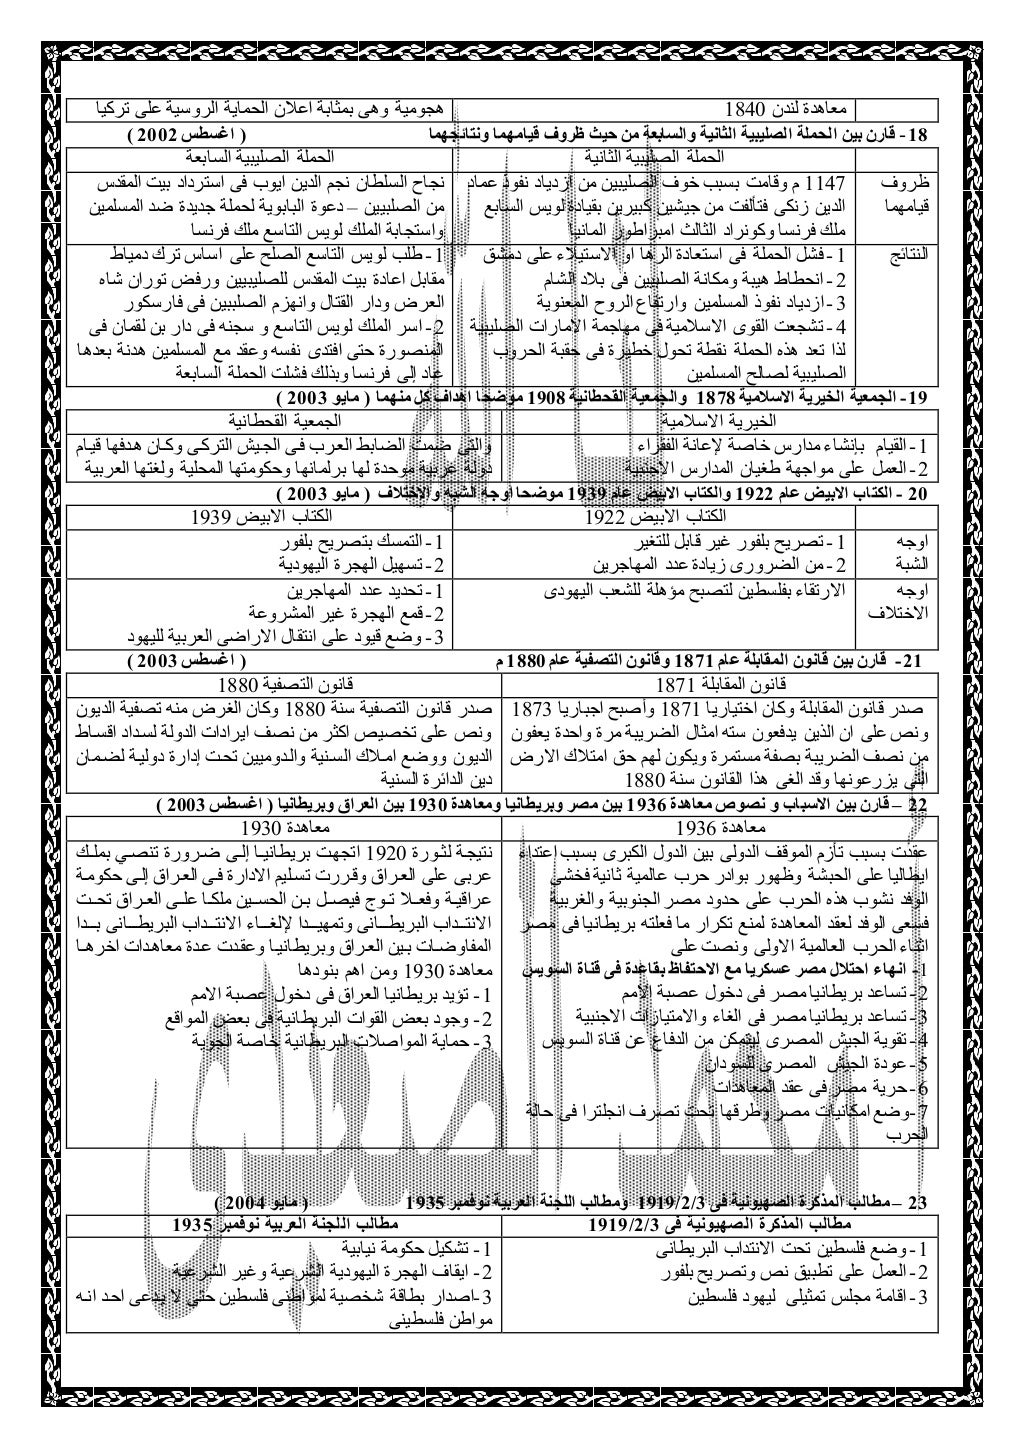 معاهدة لندن 1840
هجومية وهى بمثابة اعلان الحماية الروسية على تركيا
18- قارن بين الحملة الصليبية الثانية والسابعة من حيث ظروف قيامهما ونتائجهما ( اغسطس 2002 )
الحملة الصليبية الثانية
الحملة الصليبية السابعة
ظروف
قيامهما
1147 م وقامت بسبب خوف الصليبين من ازدياد نفوذ عماد
الدين زنكى فتألفت من جيشين كبيرين بقيادة لويس السابع
ملك فرنسا وكونراد الثالث امبراطور المانيا
نجاح السلطان نجم الدين ايوب فى استرداد بيت المقدس
من الصلبيين – دعوة البابوية لحملة جديدة ضد المسلمين
واستجابة الملك لويس التاسع ملك فرنسا
النتائج
1- فشل الحملة فى استعادة الرها او الاستيلاء على دمشق
2- انحطاط هيبة ومكانة الصليبيين فى بلاد الشام
3- ازدياد نفوذ المسلمين وارتفاع الروح المعنوية
4- تشجعت القوى الاسلامية فى مهاجمة الامارات الصليبية
لذا تعد هذه الحملة نقطة تحول خطيرة فى حقبة الحروب
الصليبية لصالح المسلمين
1- طلب لويس التاسع الصلح على اساس ترك دمياط
مقابل اعادة بيت المقدس للصليبيين ورفض توران شاه
العرض ودار القتال وانهزم الصلببين فى فارسكور
2- اسر الملك لويس التاسع و سجنه فى دار بن لقمان فى
المنصورة حتى افتدى نفسه وعقد مع المسلمين هدنة بعدها
عاد إلى فرنسا وبذلك فشلت الحملة السابعة
19- الجمعية الخيرية الاسلامية 1878 والجمعية القحطانية 1908 موضحا اهداف كل منهما ( مايو 2003 )
الخيرية الاسلامية
الجمعية القحطانية
1- القيام بإنشاء مدارس خاصة لإعانة الفقراء
2- العمل على مواجهة طغيان المدارس الاجنبية
والتى ضمت الضابط العرب فى الجيش التركى وكان هدفها قيام
دولة عربية موحدة لها برلمانها وحكومتها المحلية ولغتها العربية
20 - الكتاب الابيض عام 1922 والكتاب الابيض عام 1939 موضحا اوجه الشبه والاختلاف ( مايو 2003 )
الكتاب الابيض 1922
الكتاب الابيض 1939
اوجه
الشبة
1- تصريح بلفور غير قابل للتغير
2- من الضرورى زيادة عدد المهاجرين
1- التمسك بتصريح بلفور
2- تسهيل الهجرة اليهودية
اوجه
الاختلاف
الارتقاء بفلسطين لتصبح مؤهلة للشعب اليهودى
1- تحديد عدد المهاجرين
2- قمع الهجرة غير المشروعة
3- وضع قيود على انتقال الاراضى العربية لليهود
21- قارن بين قانون المقابلة عام 1871 وقانون التصفية عام 1880 م ( اغسطس 2003 )
قانون المقابلة 1871
قانون التصفية 1880
صدر قانون المقابلة وكان اختياريا 1871 وأصبح اجباريا 1873
ونص على ان الذين يدفعون سته امثال الضريبة مرة واحدة يعفون
من نصف الضريبة بصفة مستمرة ويكون لهم حق امتلاك الارض
التى يزرعونها وقد الغى هذا القانون سنة 1880
صدر قانون التصفية سنة 1880 وكان الغرض منه تصفية الديون
ونص على تخصيص اكثر من نصف ايرادات الدولة لسداد اقساط
الديون ووضع املاك السنية والدوميين تحت إدارة دولية لضمان
دين الدائرة السنية
22 – قارن بين الاسباب و نصوص معاهدة 1936 بين مصر وبريطانيا ومعاهدة 1930 بين العراق وبريطانيا ( اغسطس 2003 )
معاهدة 1936
معاهدة 1930
عقدت بسبب تأزم الموقف الدولى بين الدول الكبرى بسبب إعتداء
ايطاليا على الحبشة وظهور بوادر حرب عالمية ثانية فخشى
الوفد نشوب هذه الحرب على حدود مصر الجنوبية والغربية
فسعى الوفد لعقد المعاهدة لمنع تكرار ما فعلته بريطانيا فى مصر
اثناء الحرب العالمية الاولى ونصت على
1- انهاء احتلال مصر عسكريا مع الاحتفاظ بقاعدة فى قناة السويس
2- تساعد بريطانيا مصر فى دخول عصبة الأمم
3- تساعد بريطانيا مصر فى الغاء والامتيازات الاجنبية
4- تقوية الجيش المصرى ليتمكن من الدفاع عن قناة السويس
5- عودة الجيش المصرى للسودان
6- حرية مصر فى عقد المعاهدات
7- وضع امكانيات مصر وطرقها تحت تصرف انجلترا فى حالة
الحرب
نتيجة لثورة 1920 اتجهت بريطانيا إلى ضرورة تنصي بملك
عربى على العراق وقررت تسليم الادارة فى العراق إلى حكومة
عراقية وفعلا توج فيصل بن الحسين ملكا على العراق تحت
الانتداب البريطانى وتمهيدا لإلغاء الانتداب البريطانى بدا
المفاوضات بين العراق وبريطانيا وعقدت عدة معاهدات اخرها
معاهدة 1930 ومن اهم بنودها
1- تؤيد بريطانيا العراق فى دخول عصبة الامم
2- وجود بعض القوات البريطانية فى بعض المواقع
3- حماية المواصلات البريطانية خاصة الجوية
23 – مطالب المذكرة الصهيونية فى 1919/2/3 ومطالب اللجنة العربية نوفمبر 1935 ( مايو 2004 )
مطالب المذكرة الصهيونية فى 1919/2/3
مطالب اللجنة العربية نوفمبر 1935
1- وضع فلسطين تحت الانتداب البريطانى
2- العمل على تطبيق نص وتصريح بلفور
3- اقامة مجلس تمثيلى ليهود فلسطين
1- تشكيل حكومة نيابية
2- ايقاف الهجرة اليهودية الشرعية وغير الشرعية
3- اصدار بطاقة شخصية لمواطنى فلسطين حتى لا يدعى احد انه
مواطن فلسطينى